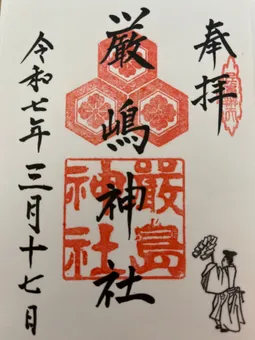 奉拝
厳嶋神社
厳島神社
令和七年三月十七日